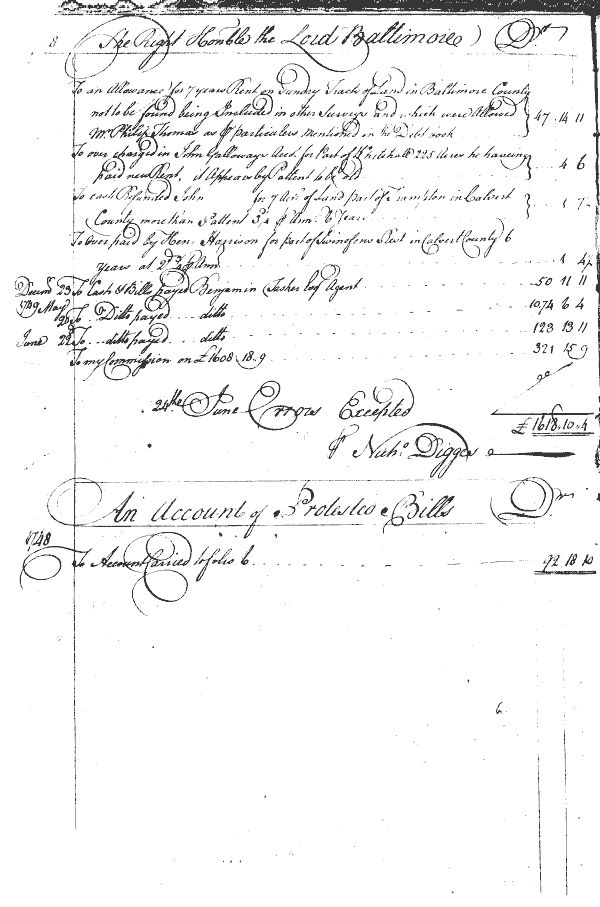 8 The Right Honble the Lord Baltimore Dr
To an Allowance for 7 years Rent on Sundry Tracts of Land in Baltimore County
not to be found being Included in other Surveys and which were Allowed
Mr Philip Thomas as pr particulars mentioned in the Debt book 47 14 11
To over charged in John Galloways Acct. for Part of Whitehall 225 Acres he having
paid new Rent, it Appears by Pattent to be old 4 6
To cash Refunded John for 7 Acrs of Land part of Trampton in Calvert
County more than Pattent 3d pr Ann. 6 Years 1 7
To Over paid by Hen. Harrison for part of Swinfens Rest in Calvert County 6
years at 2d pr Ann 1 4
Decemr 23 To Cash & Bills payed Benjamin Tasker Esq Agent 50 11 11
1749 May 20 To Ditto payed ditto 1074 6 4
June 22d To ditto payed ditto 123 13 11
To my Commission on £1608 18.9 321 15 9
24th June Errors Excepted £1618.10.4
Pr Nichs. Digges
An Account of Protested Bills Dr
1748
To Account Carried to folio 6 92 18 10
6